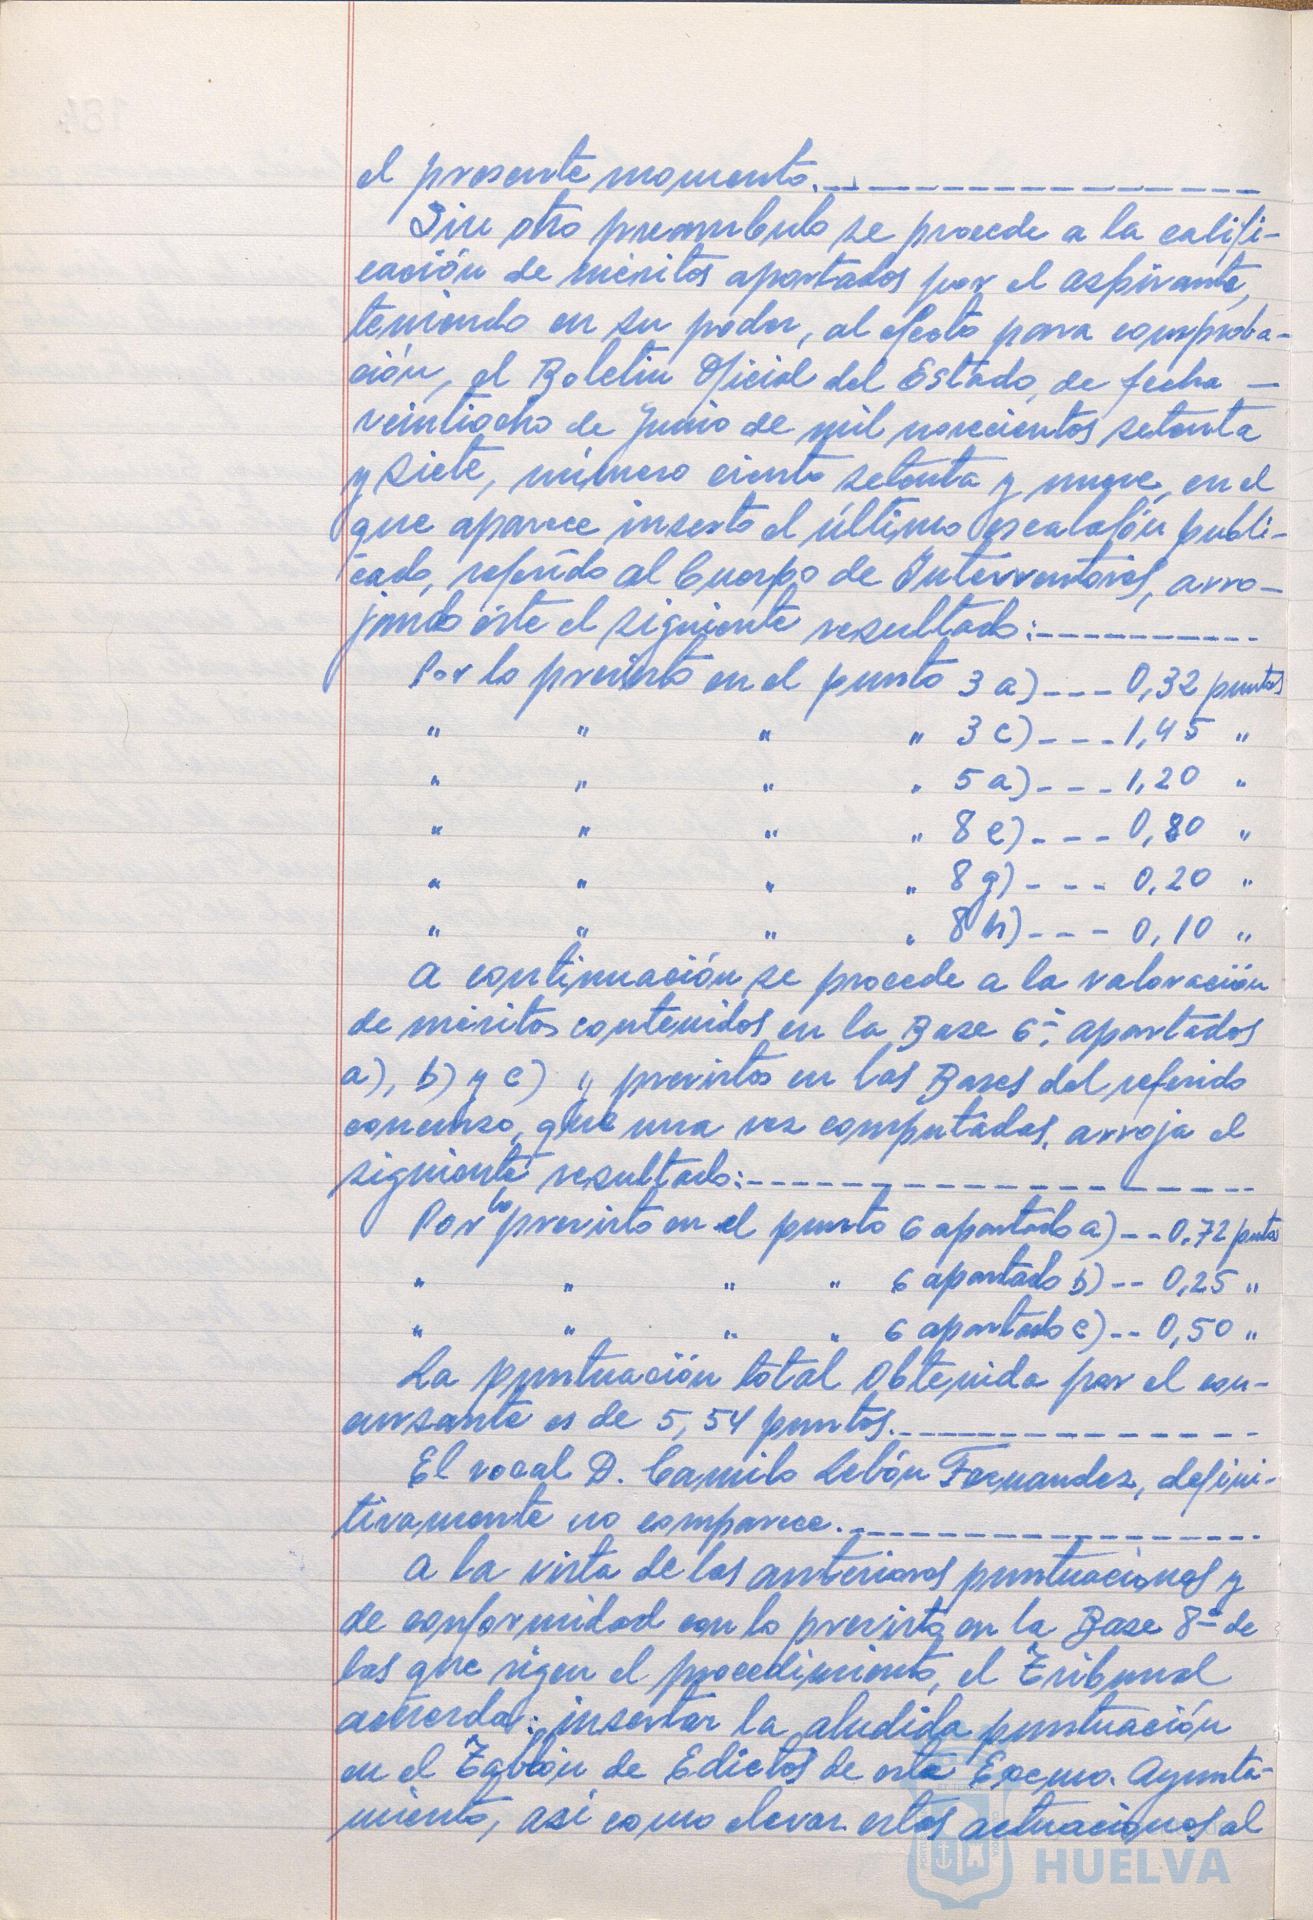 el presente momento.
Sin otro preambulo se procede a la califi-
cación de méritos aportados por el aspirante,
teniendo en su poder, al efecto para comproba-
ción, el Boletin Oficial del Estado, de fecha —
veintiocho de Junio de mil novecientos setenta
y siete, número ciento setenta y nueve, en el
que aparece inserto el último escalafón publi-
cado, referido al Cuerpo de Interventores, arro-
jando éste el siguiente resultado:----------
Por lo previsto en el punto 3 a)---0,32 puntos
" " " " 3 c)---1,45 "
" " " " 5 a)---1,20 "
" " " " 8 e)---0,80 "
" " " " 8 g)---0,20 "
" " " " 8 h)---0,10 "
A continuación se procede a la valoración
de méritos contenidos en la Base 6ª, apartados
a), b) y c) previstos en las Bases del referido
concurso, que una vez computadas, arroja el
siguiente resultado:----------
Por lo previsto en el punto 6 apartado a)--0,72 puntos
" " " " 6 apartado b)--0,25 "
" " " " 6 apartado c)--0,50 "
La puntuación total obtenida por el con-
cursante es de 5,54 puntos.----------
El vocal D. Camilo Lebón Fernandez, defini-
tivamente no comparece.----------
A la vista de las anteriores puntuaciones y
de conformidad con lo previsto en la Base 8ª de
las que rigen el procedimiento, el Tribunal
acuerda: insertar la aludida puntuación
en el Tablón de Edictos de este Excmo. Ayunta-
miento, asi como elevar estas actuaciones al
HUELVA